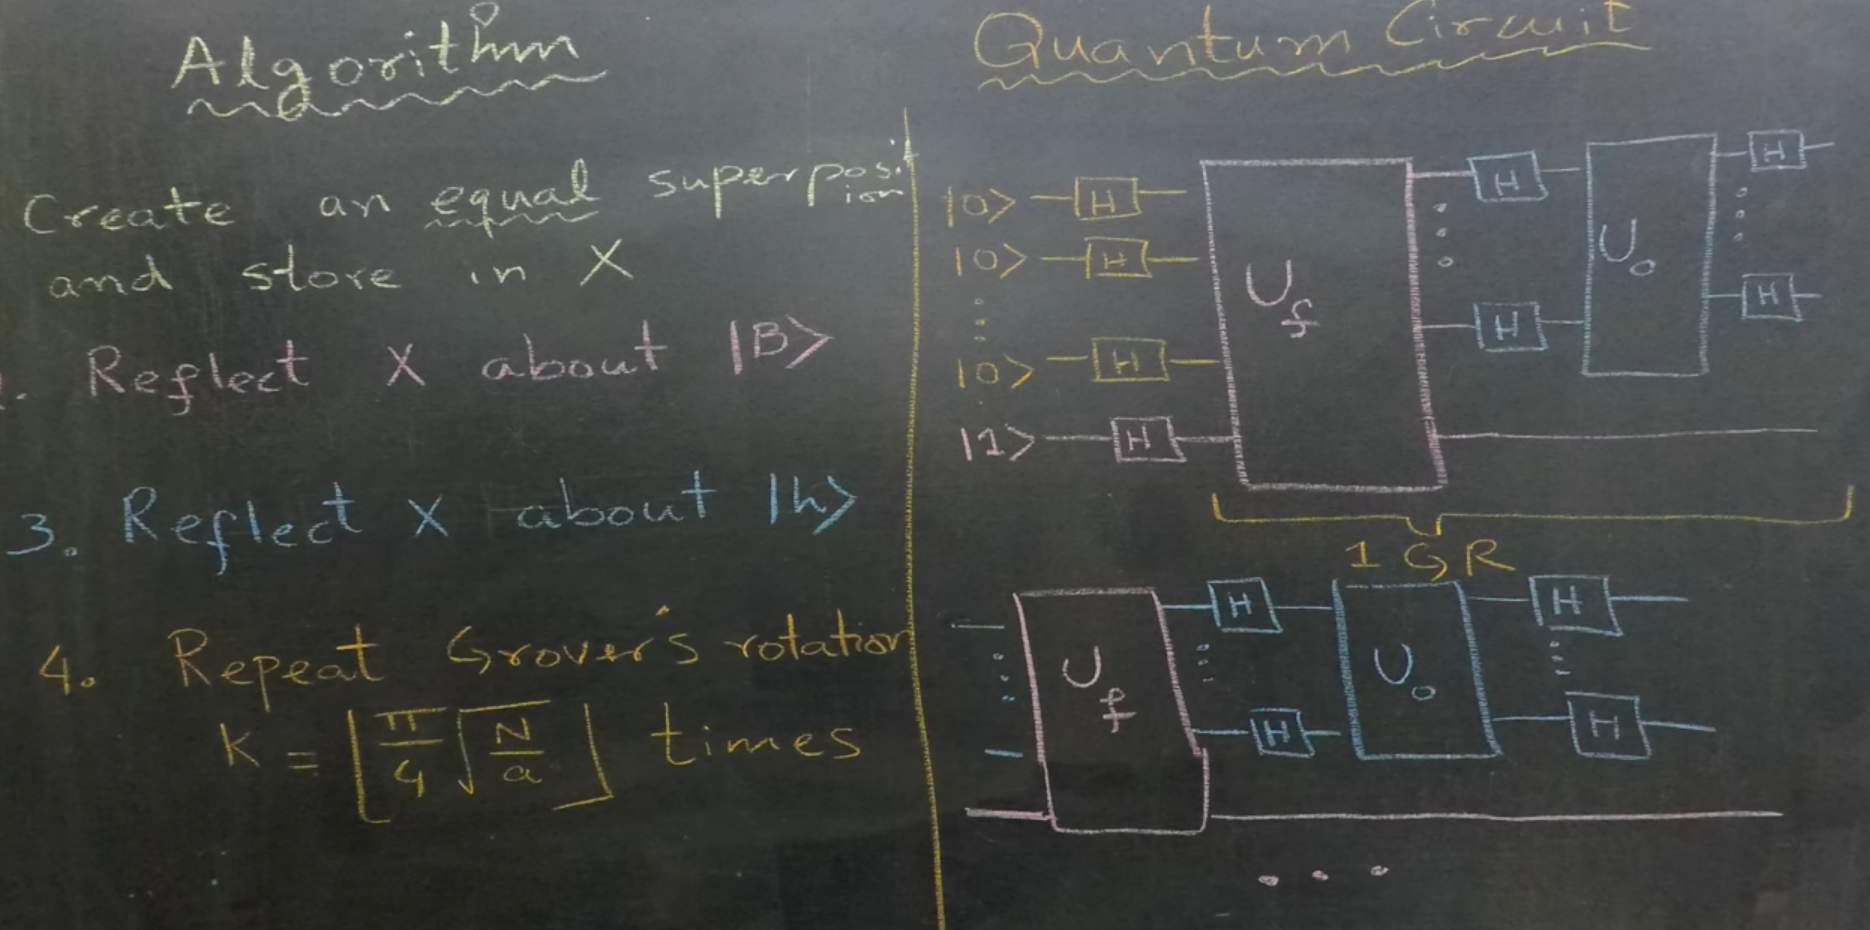 Algorithm
Create an equal superposition
and store in X
Reflect X about |B>
3. Reflect X about |h>
4. Repeat Grover's rotation
K = ⌊π/4 √N/a⌋ times
Quantum Circuit
|0> H
|0> H
|0> H
|1> H
U_f
H
H
U_o
H
H
1 GR
U_f
H
H
U_o
H
H